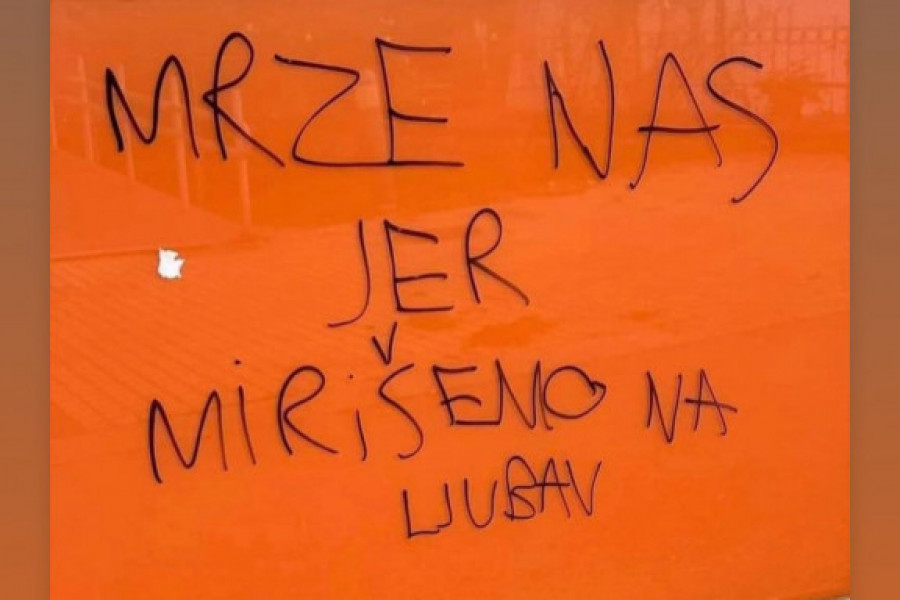 MRZE NAS
JER
MiRiŠEMO NA
LJUBAV